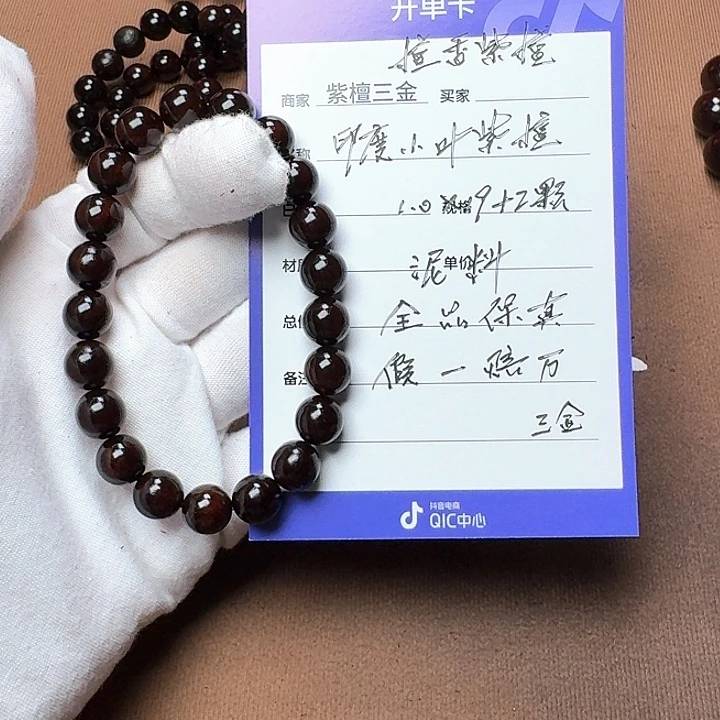 开单卡
檀香紫檀
商家 紫檀三金 买家
名称 印度小叶紫檀
1.0 规格 9+2颗
材质 泥料 单价
总价 全品保真
备注 假一赔万
三金
抖音电商
QIC中心